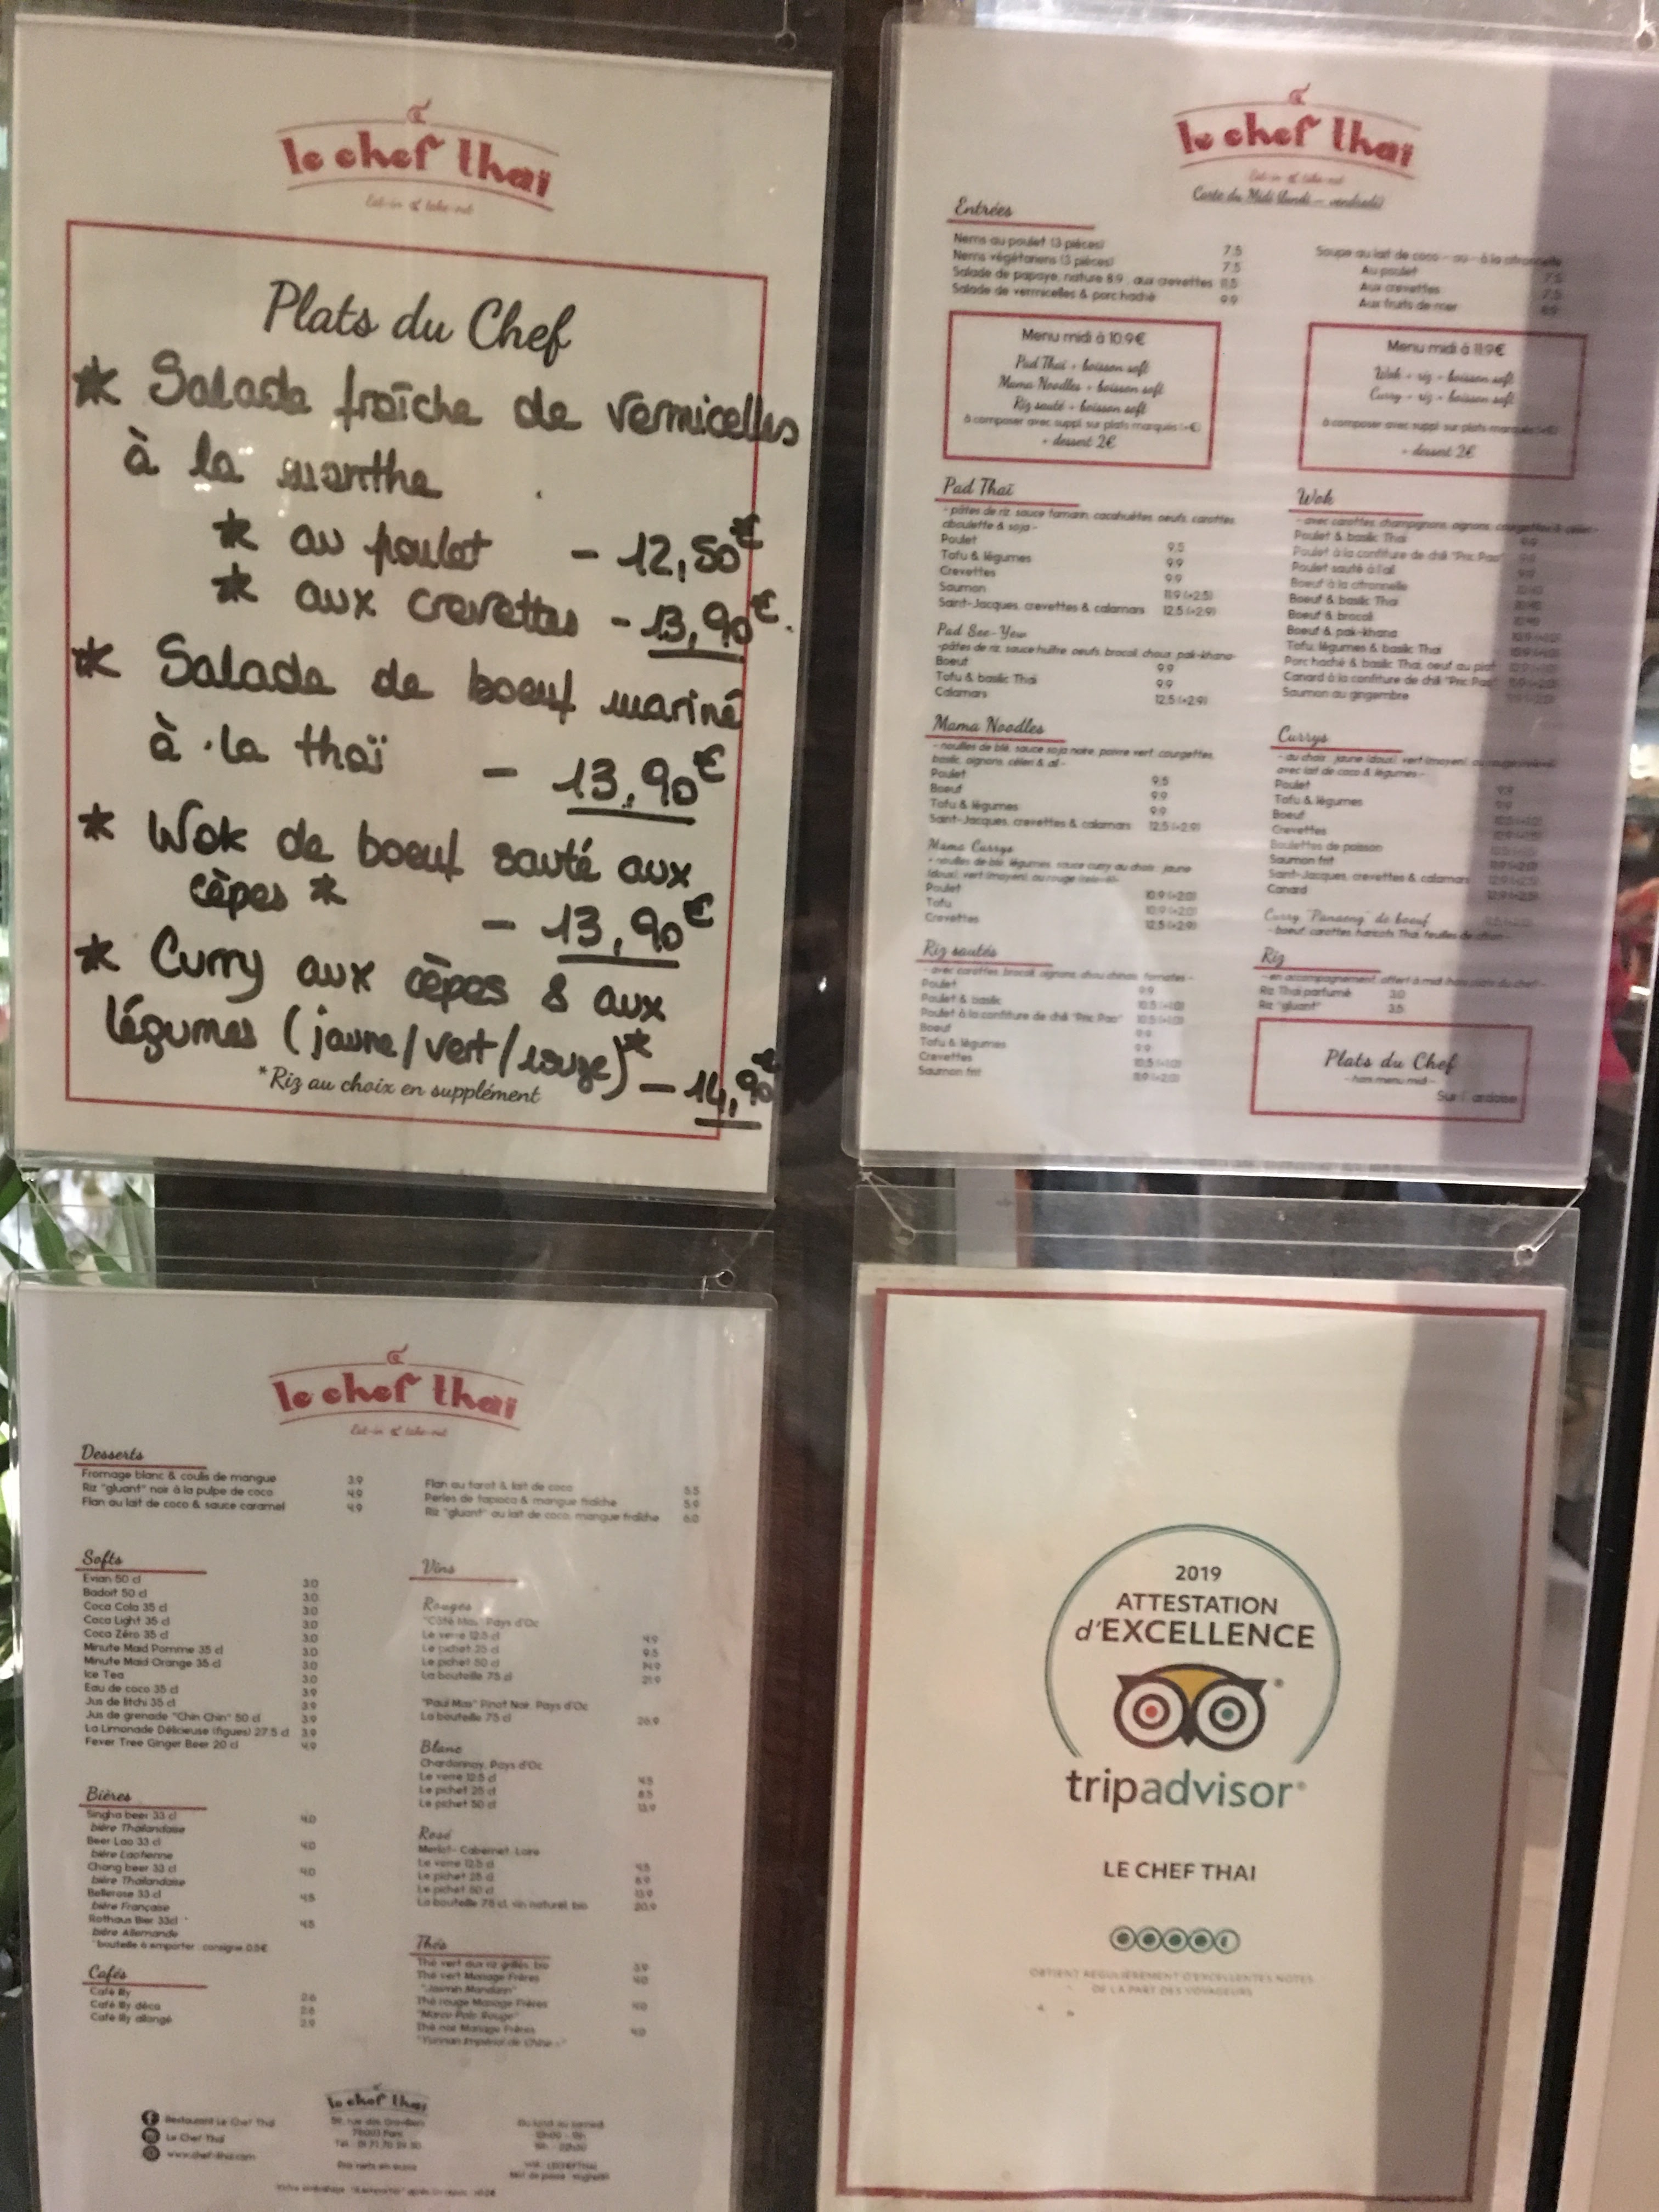 le chef thaï
Eat-in & take-out
Plats du Chef
* Salade fraîche de vermicelles
à la menthe
* au poulet - 12,50€
* aux crevettes - 13,90€.
* Salade de boeuf mariné
à la thaï - 13,90€
* Wok de boeuf sauté aux
cèpes *
- 13,90€
* Curry aux cèpes & aux
légumes (jaune/vert/rouge)*
- 14,90€
*Riz au choix en supplément
le chef thaï
Eat-in & take-out
Carte du Midi (lundi - vendredi)
Entrées
Nems au poulet (3 pièces) 7.5
Nems végétariens (3 pièces) 7.5
Salade de papaye, nature 8.9, aux crevettes 11.5
Salade de vermicelles & porc haché 9.9
Soupe au lait de coco - ou - à la citronnelle
Au poulet 7.5
Aux crevettes 7.5
Aux fruits de mer 8.9
Menu midi à 10.9€
Pad Thaï + boisson soft
Mama Noodles + boisson soft
Riz sauté + boisson soft
à composer avec suppl. sur plats marqués (+€)
+ dessert 2€
Menu midi à 11.9€
Wok + riz + boisson soft
Curry + riz + boisson soft
à composer avec suppl. sur plats marqués (+€)
+ dessert 2€
Pad Thaï
- pâtes de riz, sauce tamarin, cacahuètes, oeufs, carottes,
ciboulette & soja -
Poulet 9.5
Tofu & légumes 9.9
Crevettes 9.9
Saumon 11.9 (+2.5)
Saint-Jacques, crevettes & calamars 12.5 (+2.9)
Pad See-Yew
-pâtes de riz, sauce huître, oeufs, brocoli, choux pak-khana-
Boeuf 9.9
Tofu & basilic Thaï 9.9
Calamars 12.5 (+2.9)
Mama Noodles
- nouilles de blé, sauce soja noire, poivre vert, courgettes,
basilic, oignons, céleri & ail -
Poulet 9.5
Boeuf 9.9
Tofu & légumes 9.9
Saint-Jacques, crevettes & calamars 12.5 (+2.9)
Mama Currys
- nouilles de blé, légumes, sauce curry au choix : jaune
(doux), vert (moyen), ou rouge
Poulet 10.9 (+2.0)
Tofu 10.9 (+2.0)
Crevettes 12.5 (+2.9)
Riz sautés
- avec carottes, brocoli, oignons, chou chinois, tomates -
Poulet 9.9
Poulet & basilic 10.5 (+1.0)
Poulet à la confiture de chili "Pric Pao" 10.5 (+1.0)
Boeuf 9.9
Tofu & légumes 9.9
Crevettes 10.5 (+1.0)
Saumon frit
Wok
- avec carottes, champignons, oignons, courgettes & céleri -
Poulet & basilic Thaï 9.9
Poulet à la confiture de chili "Pric Pao" 9.9
Poulet sauté à l'ail 9.9
Boeuf à la citronnelle
Boeuf & basilic Thaï
Boeuf & brocoli
Boeuf & pak-khana
Tofu, légumes & basilic Thaï
Porc haché & basilic Thaï, oeuf au plat
Canard à la confiture de chili "Pric Pao"
Saumon au gingembre
Currys
- au choix : jaune (doux), vert (moyen), ou rouge
avec lait de coco & légumes -
Poulet 9.9
Tofu & légumes 9.9
Boeuf
Crevettes
Boulettes de poisson
Saumon frit
Saint-Jacques, crevettes & calamars
Canard
Curry "Panaeng" de boeuf
- boeuf, carottes, haricots Thaï, feuilles de citron -
Riz
- en accompagnement, offert à midi (hors plats du chef) -
Riz Thaï parfumé 3.0
Riz "gluant" 3.5
Plats du Chef
- hors menu midi -
Sur l'ardoise
le chef thaï
Eat-in & take-out
Desserts
Fromage blanc & coulis de mangue 3.9
Riz "gluant" noir à la pulpe de coco 4.9
Flan au lait de coco & sauce caramel 4.9
Flan au tarot & lait de coco 5.5
Perles de tapioca & mangue fraîche 5.9
Riz "gluant" au lait de coco, mangue fraîche 6.0
Softs
Evian 50 cl 3.0
Badoit 50 cl 3.0
Coca Cola 35 cl 3.0
Coca Light 35 cl 3.0
Coca Zéro 35 cl 3.0
Minute Maid Pomme 35 cl 3.0
Minute Maid Orange 35 cl 3.0
Ice Tea 3.0
Eau de coco 35 cl 3.9
Jus de litchi 35 cl 3.9
Jus de grenade "Chin Chin" 50 cl 3.9
La Limonade Délicieuse (figues) 27.5 cl 3.9
Fever Tree Ginger Beer 20 cl 4.9
Bières
Singha beer 33 cl 4.0
bière Thaïlandaise
Beer Lao 33 cl 4.0
bière Laotienne
Chang beer 33 cl 4.0
bière Thaïlandaise
Bellerose 33 cl 4.5
bière Française
Rothaus Bier 33cl * 4.5
bière Allemande
*bouteille à emporter : consigne 0.5€
Cafés
Café Illy 2.6
Café Illy déca 2.6
Café Illy allongé 2.9
Vins
Rouges
"Côté Mas" Pays d'Oc
Le verre 12.5 cl 4.9
Le pichet 25 cl 9.5
Le pichet 50 cl 14.9
La bouteille 75 cl 21.9
"Paul Mas" Pinot Noir, Pays d'Oc
La bouteille 75 cl 26.9
Blanc
Chardonnay, Pays d'Oc
Le verre 12.5 cl 4.5
Le pichet 25 cl 8.5
Le pichet 50 cl 13.9
Rosé
Merlot - Cabernet, Loire
Le verre 12.5 cl 4.5
Le pichet 25 cl 8.9
Le pichet 50 cl 13.9
La bouteille 75 cl, vin naturel, bio 20.9
Thés
Thé vert aux riz grillés, bio 3.9
Thé vert Mariage Frères 4.0
"Jasmin Mandarin"
Thé rouge Mariage Frères 4.0
"Marco Polo Rouge"
Thé noir Mariage Frères 4.0
"Yunnan Impérial de Chine"
Restaurant Le Chef Thaï
Le Chef Thaï
www.chef-thai.com
le chef thaï
rue des Gravilliers
75003 Paris
Prix nets en euros
Du lundi au samedi
2019
ATTESTATION
d'EXCELLENCE
tripadvisor®
LE CHEF THAI
OBTIENT RÉGULIÈREMENT D'EXCELLENTES NOTES
DE LA PART DES VOYAGEURS